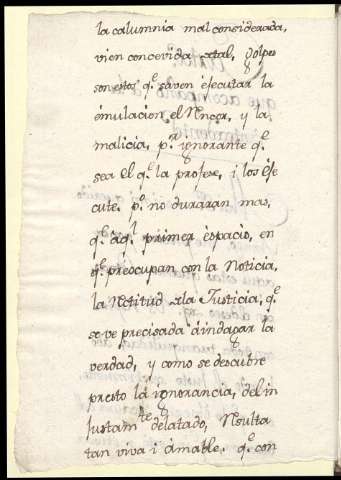 la calumnia mal considerada,
vien concevida tal, Golpes
son estos q.e saven èjecutar la
èmulacion, el Rencor, y la
malicia, p.r ignorante q.e
sea El q.e la profese, i los Eje
cute. p.o no duraran mas,
q.e àql primer èspacio, en
q.e preòcupan con la Noticia,
la Rectitud dla Justicia, q.e
se ve precisada àindagar la
verdad, y como se descubre
presto la ignorancia, del in
justam.te delatado, Resulta
tan viva i àmable, q.e con